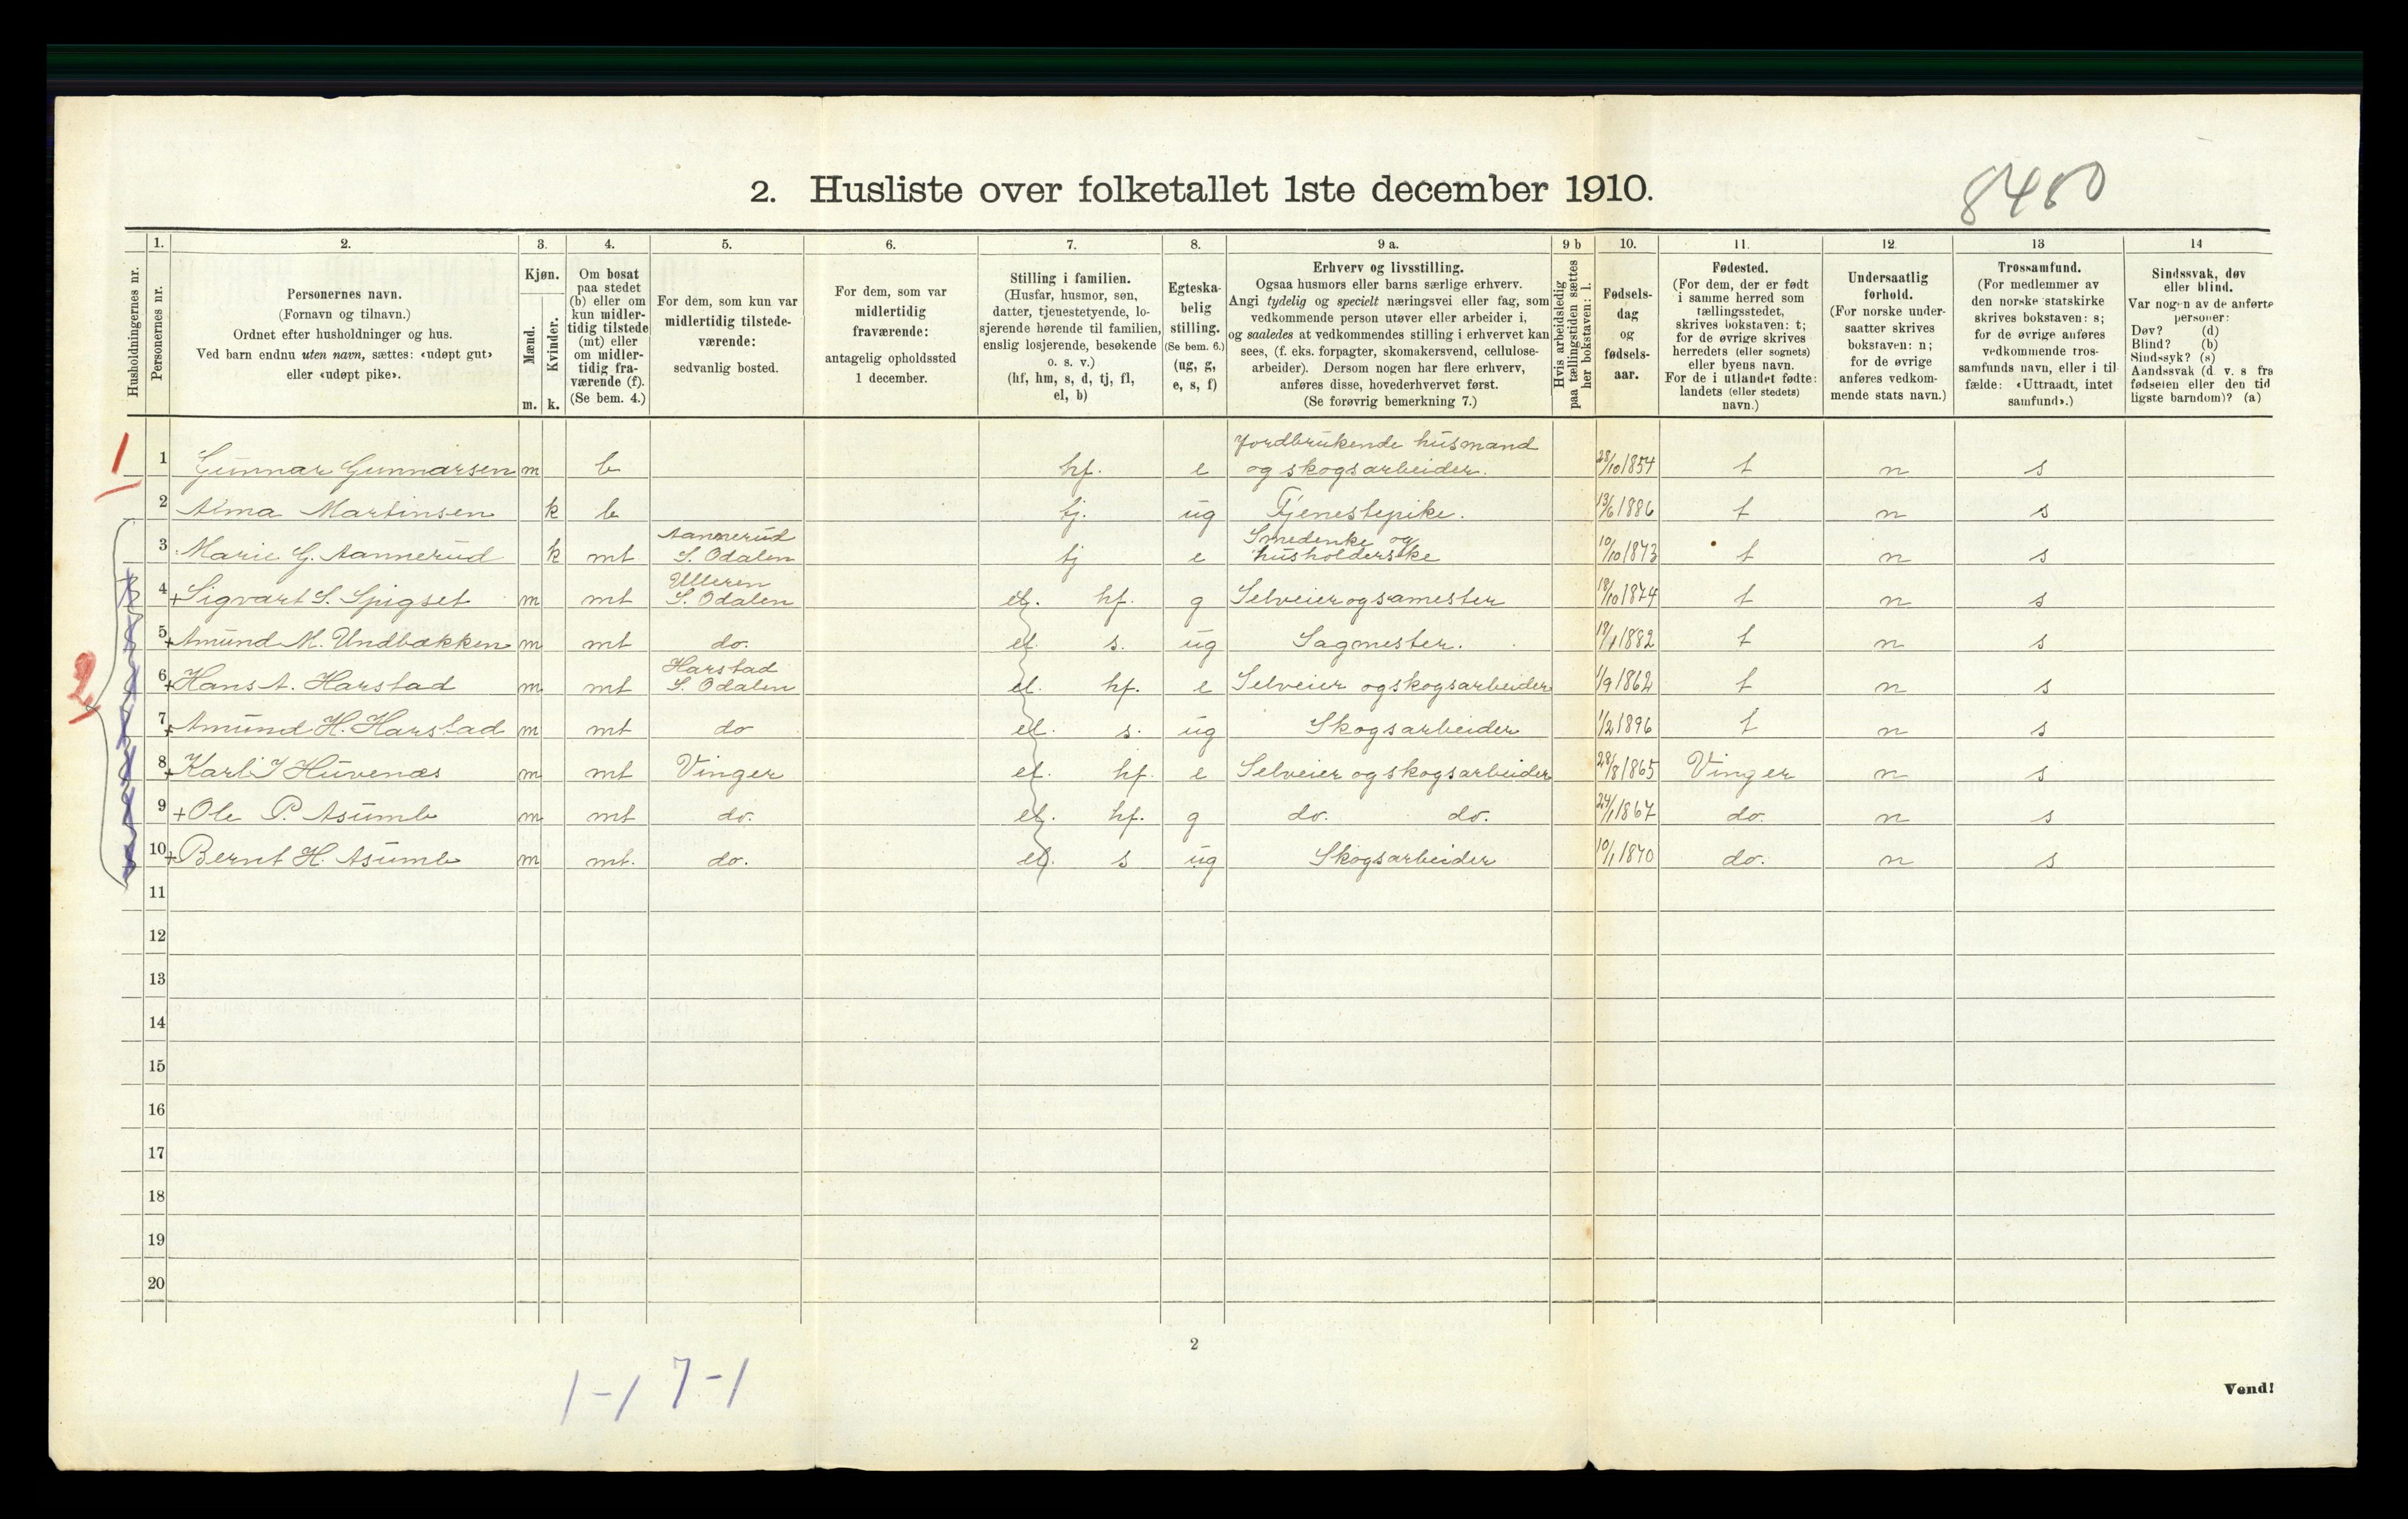 2. Husliste over folketallet 1ste december 1910.
8480
Husholdningernes nr.
1.
Personernes nr.
2.
Personernes navn.
(Fornavn og tilnavn.)
Ordnet efter husholdninger og hus.
Ved barn endnu uten navn, sættes: «udøpt gut»
eller «udøpt pike».
3.
Kjøn.
Mænd.
Kvinder.
m. k.
4.
Om bosat
paa stedet
(b) eller om
kun midler-
tidig tilstede
(mt) eller
om midler-
tidig fra-
værende (f).
(Se bem. 4.)
5.
For dem, som kun var
midlertidig tilstede-
værende:
sedvanlig bosted.
6.
For dem, som var
midlertidig
fraværende:
antagelig opholdssted
1 december.
7.
Stilling i familien.
(Husfar, husmor, søn,
datter, tjenestetyende, lo-
sjerende hørende til familien,
enslig losjerende, besøkende
o. s. v.)
(hf, hm, s, d, tj, fl,
el, b)
8.
Egteska-
belig
stilling.
(Se bem. 6.)
(ug, g,
e, s, f)
9 a.
Erhverv og livsstilling.
Ogsaa husmors eller barns særlige erhverv.
Angi tydelig og specielt næringsvei eller fag, som
vedkommende person utøver eller arbeider i,
og saaledes at vedkommendes stilling i erhvervet kan
sees, (f. eks. forpagter, skomakersvend, cellulose-
arbeider). Dersom nogen har flere erhverv,
anføres disse, hovederhvervet først.
(Se forøvrig bemerkning 7.)
9 b
Hvis arbeidsledig
paa tællingstiden sættes
her bokstaven: l.
10.
Fødsels-
dag
og
fødsels-
aar.
11.
Fødested.
(For dem, der er født
i samme herred som
tællingsstedet,
skrives bokstaven: t;
for de øvrige skrives
herredets (eller sognets)
eller byens navn.
For de i utlandet fødte:
landets (eller stedets)
navn.)
12.
Undersaatlig
forhold.
(For norske under-
saatter skrives
bokstaven: n;
for de øvrige
anføres vedkom-
mende stats navn.)
13
Trossamfund.
(For medlemmer av
den norske statskirke
skrives bokstaven: s;
for de øvrige anføres
vedkommende tros-
samfunds navn, eller i til
fælde: «Uttraadt, intet
samfund».)
14
Sindssvak, døv
eller blind.
Var nogen av de anførte
personer:
Døv? (d)
Blind? (b)
Sindssyk? (s)
Aandssvak (d. v. s fra
fødselen eller den tid
ligste barndom)? (a)
Jordbrukende husmand
1 1 Gunnar Gunnarsen m b hf. e og skogsarbeider. 28/10 1854 t n s
2 Alma Martinsen k b tj. ug Tjenestepike. 13/6 1886 t n s
Aannerud Smedenke og
3 Marie G. Aannerud k mt S. Odalen tj e husholderske 10/10 1873 t n s
Ulleren
4 +Sigvart S. Spigset m mt S. Odalen el. hf. g Selveier og samester 18/10 1874 t n s
5 +Amund M. Undbakken m mt do. el. s. ug Sagmester. 19/1 1882 t n s
2 Harstad
6 +Hans A. Harstad m mt S. Odalen el. hf. e Selveier og skogsarbeider 1/9 1862 t n s
7 +Amund H. Harstad m mt do el. s. ug Skogsarbeider 1/2 1896 t n s
8 +Karl J Huvenæs m mt Vinger el. hf. e Selveier og skogsarbeider 28/8 1865 Vinger n s
9 +Ole P. Asumb m mt do. el. hf. g do. do. 24/1 1867 do. n s
10 +Bernt H. Asumb m mt. do. el. s ug Skogsarbeider 10/1 1870 do. n s
11
12
13
14
15
16
17
18
19
20
2
1-1 7-1
Vend!